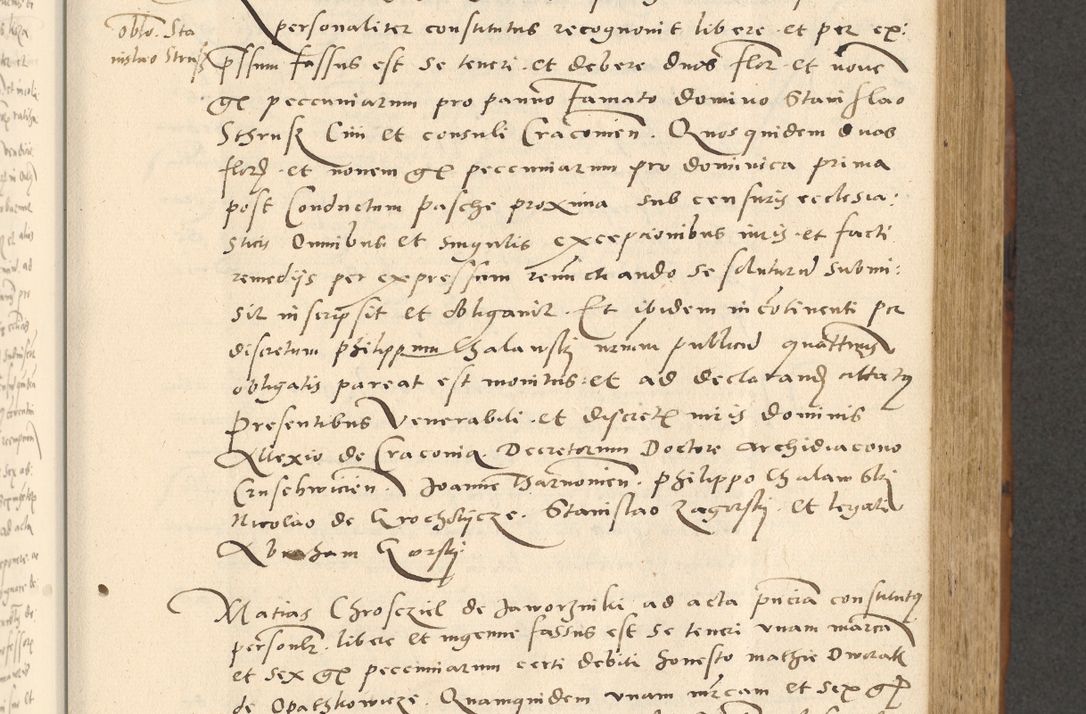 oblõ. Sta
nislao Strusz
personaliter constitutus recognovit libere et per ex:
p̃ssum fassus est se teneri et debere duos flor et novẽ
gr̃ peccuniarum pro panno famato domino Stanislao
Sthrusz Civi et consuli Cracovien. Quos quidem duos
flor et novem gr̃ peccuniarum pro dominica prima
post Conductum pasche proxima sub censuris ecclesia:
sticis Omnibus et singulis exceptionibus iuris et facti
remedijs per expressum renuctiando se soluturũ submi:
sit inscripsit et obligavit. Et ibidem incõtinenti per
discretum Philippum Chalawski nrium publicũ quatenus
obligatis pareat est monitus et ad declarand citatus
Presentibus Venerabili et discretis viris dominis
Allexio de Cracovia Decretorum Doctore archidiacono
Cruschwicien. Joanne Tarnovien. Philippo Chalawski
Nicolao de Grochdijcze. Stanislao Zagorskj et legali
Abraham Gorskj
Matias Chroscziel de Jaworznikj ad acta p̃nciam constitutus
personlr. libere et ingenue fassus est se teneri unam marcã
et sex gr̃ peccuniarum certi debiti honesto mathie Dworak
de Opathkowicze. Quamquidem unam mrcam et sex gr̃